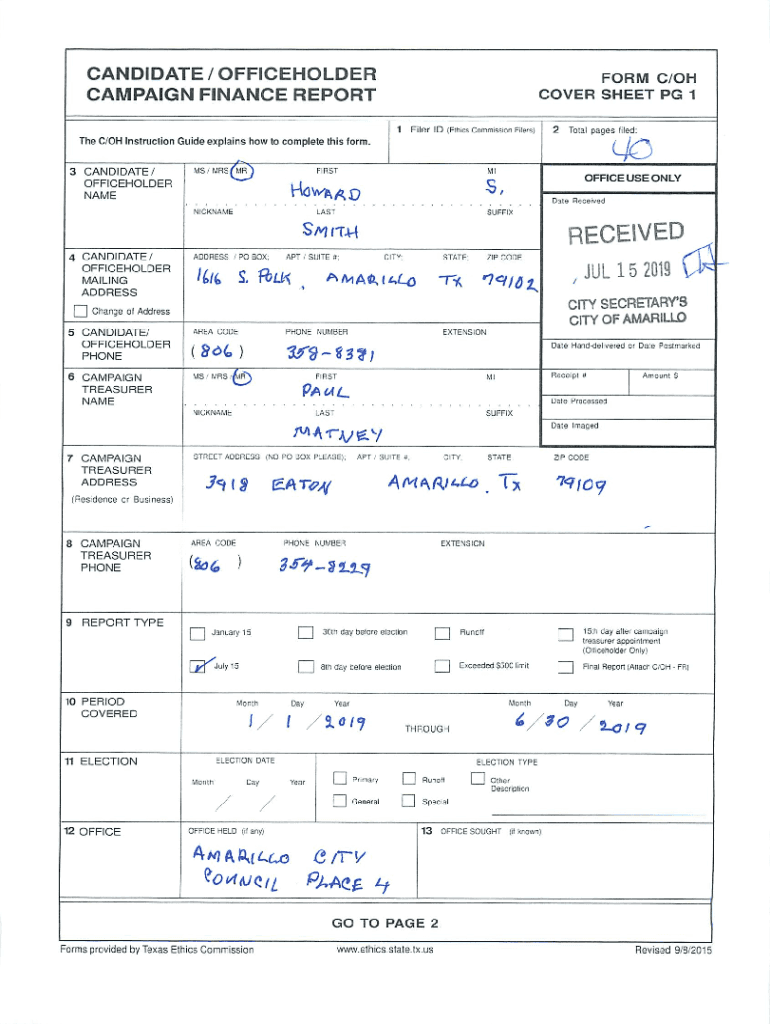 CANDIDATE / OFFICEHOLDER
CAMPAIGN FINANCE REPORT
FORM C/OH
COVER SHEET PG 1
The C/OH Instruction Guide explains how to complete this form.
1 Filer ID (Ethics Commission Filers)
2 Total pages filed:
40
3 CANDIDATE / OFFICEHOLDER NAME
MS / MRS / MR FIRST MI
HOWARD S.
NICKNAME LAST SUFFIX
SMITH
OFFICE USE ONLY
Date Received
RECEIVED
JUL 15 2019
CITY SECRETARY'S
CITY OF AMARILLO
4 CANDIDATE / OFFICEHOLDER MAILING ADDRESS
Change of Address
ADDRESS / PO BOX; APT / SUITE #; CITY; STATE; ZIP CODE
1616 S. POLK, AMARILLO TX 79102
5 CANDIDATE/ OFFICEHOLDER PHONE
AREA CODE PHONE NUMBER EXTENSION
(806) 358-8381
Date Hand-delivered or Date Postmarked
6 CAMPAIGN TREASURER NAME
MS / MRS / MR FIRST MI
PAUL
NICKNAME LAST SUFFIX
MATNEY
Receipt # Amount $
Date Processed
Date Imaged
7 CAMPAIGN TREASURER ADDRESS
(Residence or Business)
STREET ADDRESS (NO PO BOX PLEASE); APT / SUITE #; CITY; STATE; ZIP CODE
3918 EATON AMARILLO. TX 79109
8 CAMPAIGN TREASURER PHONE
AREA CODE PHONE NUMBER EXTENSION
(806) 354-8229
9 REPORT TYPE
January 15
30th day before election
Runoff
15th day after campaign treasurer appointment (Officeholder Only)
July 15
8th day before election
Exceeded $500 limit
Final Report (Attach C/OH - FR)
10 PERIOD COVERED
Month Day Year
1 / 1 / 2019
THROUGH
Month Day Year
6 / 30 / 2019
11 ELECTION
ELECTION DATE
Month Day Year
/ /
ELECTION TYPE
Primary Runoff Other Description
General Special
12 OFFICE
OFFICE HELD (if any)
AMARILLO CITY
COUNCIL PLACE 4
13 OFFICE SOUGHT (if known)
GO TO PAGE 2
Forms provided by Texas Ethics Commission www.ethics.state.tx.us Revised 9/8/2015